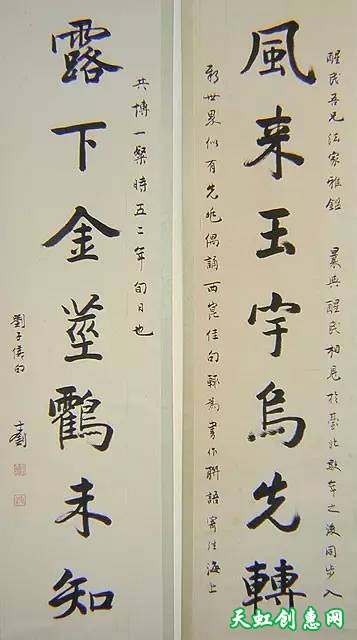 醒民吾兄法家雅鑑 曩與醒民相見於臺北數年之後同步入
風来玉宇烏先轉
新世界似有先兆偶誦西崑佳句輒為書作聯語寄往海上
共博一粲時五二年旬日也
露下金莖鸖未知
劉子
天虹创惠网